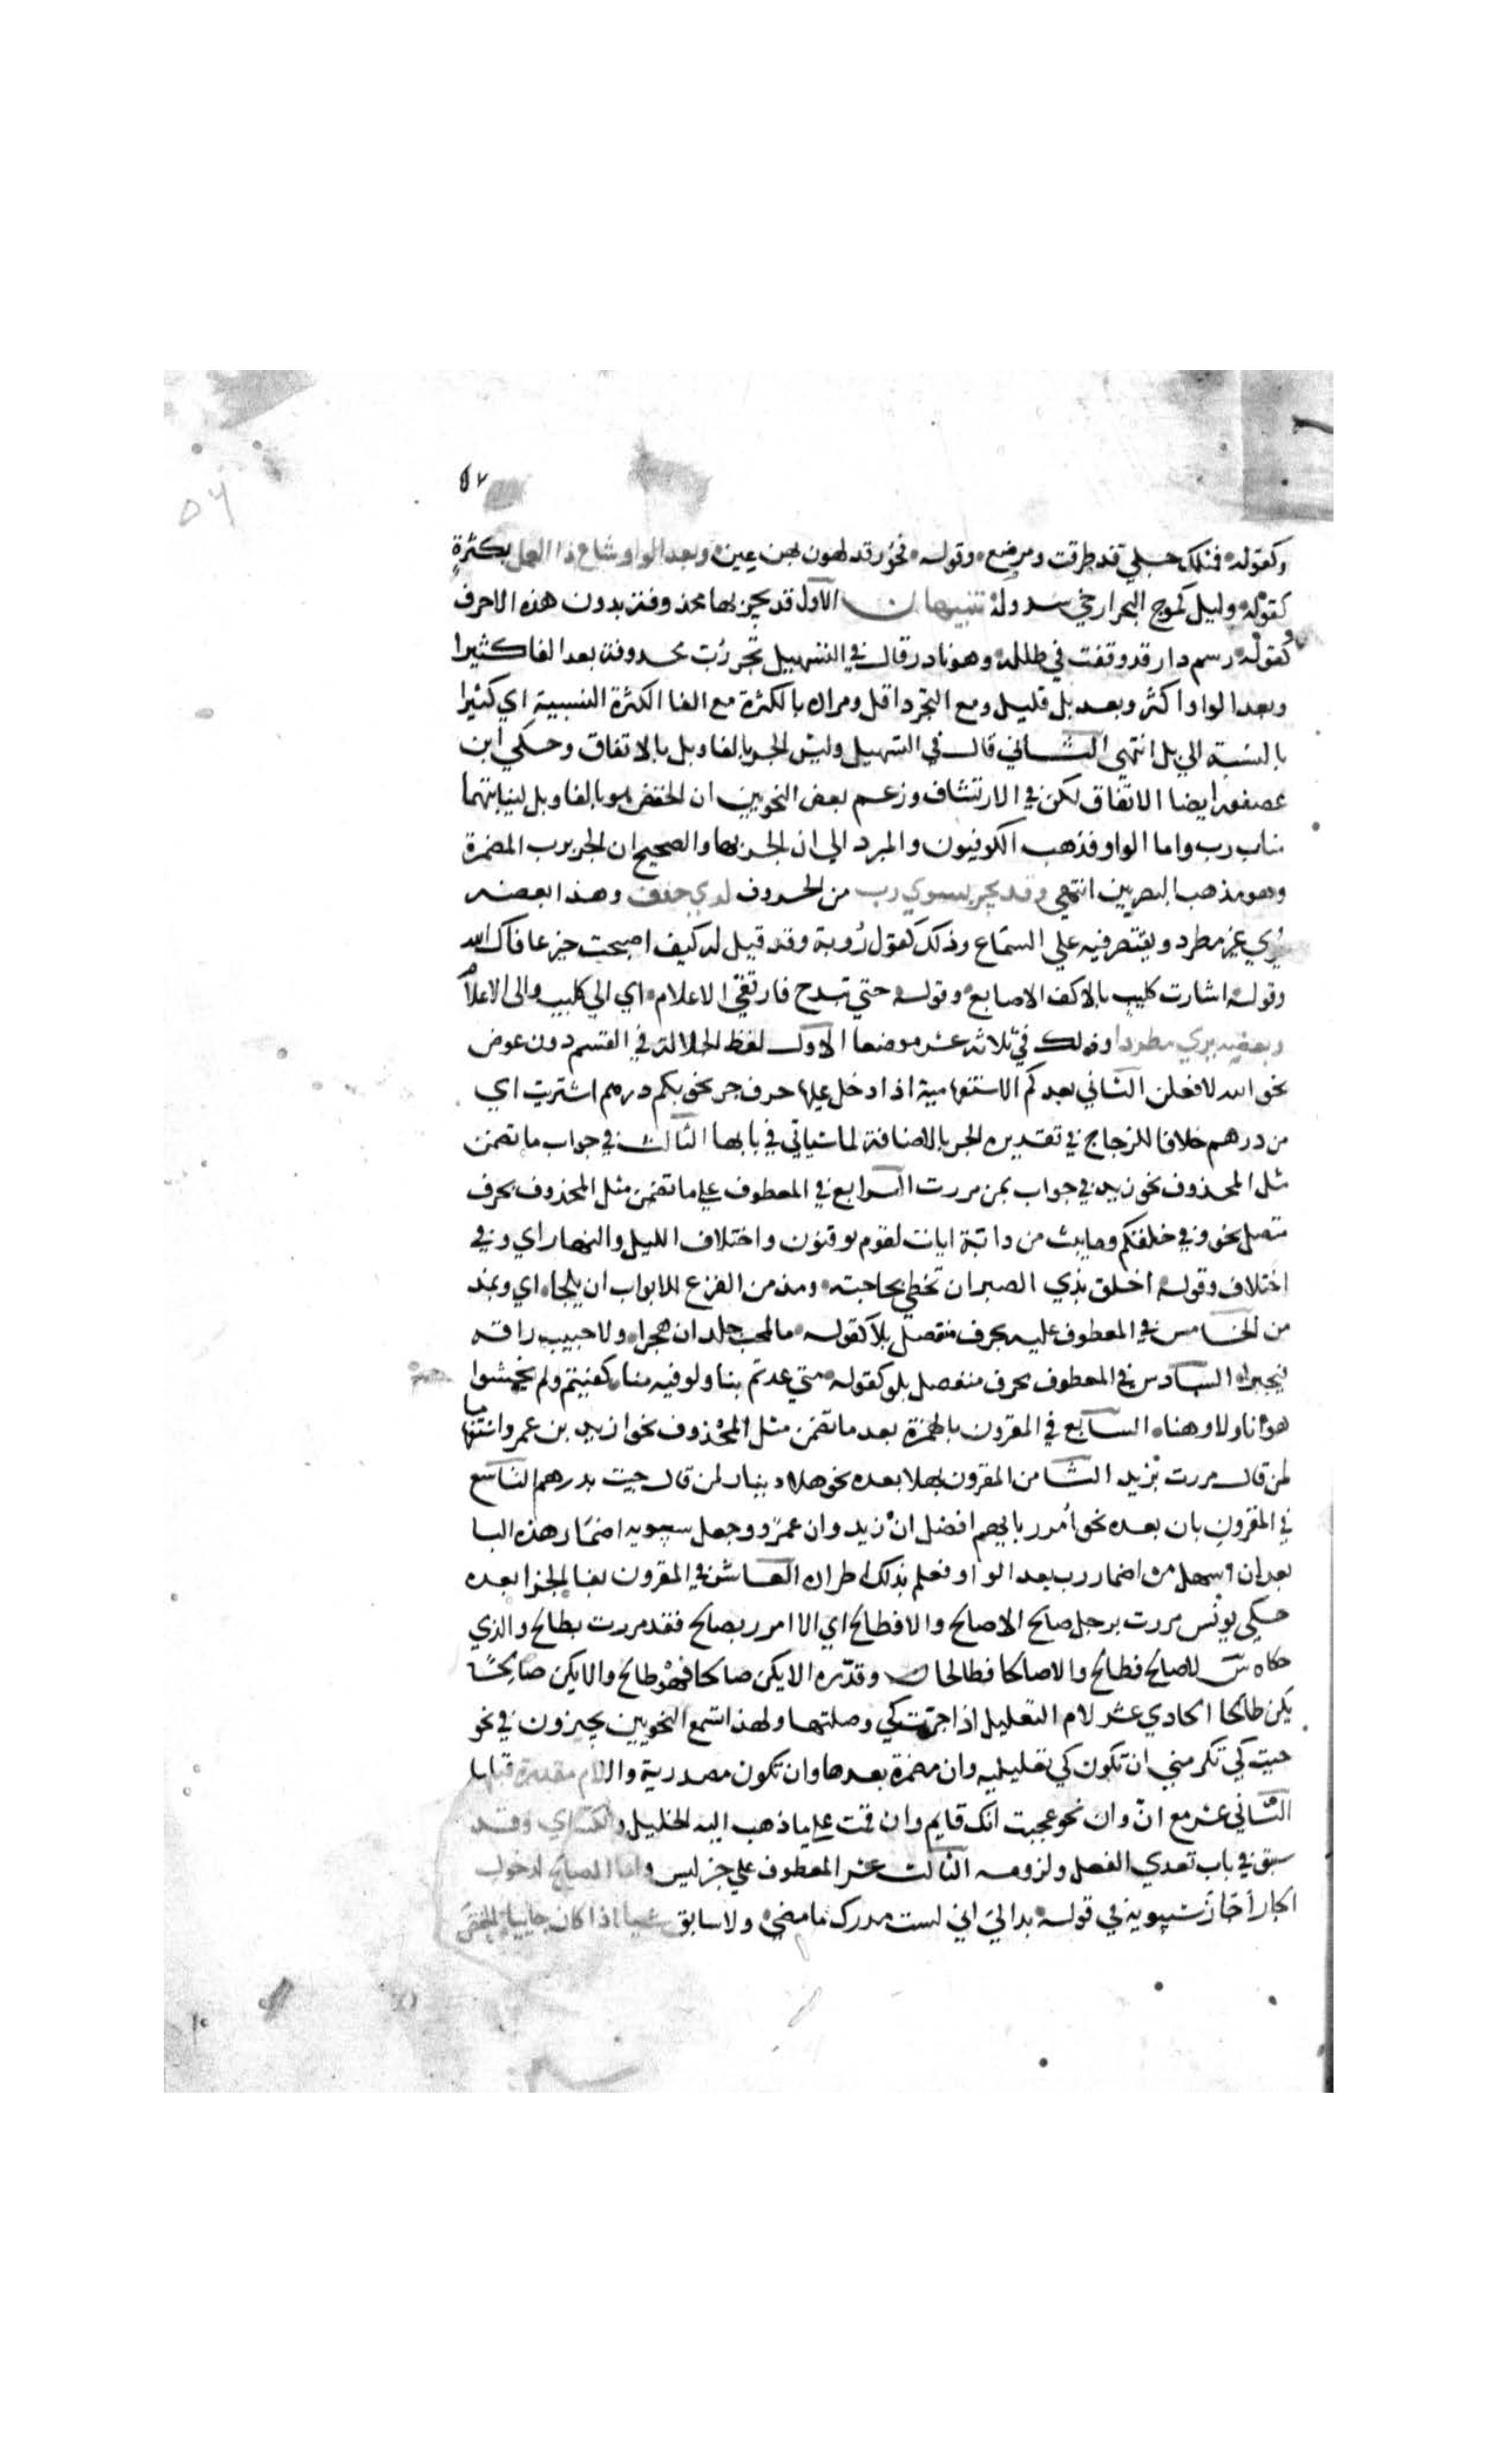 ٥٧
وكقوله فمثلك حبلي قد طرقت ومرضع وقوله فحور قد لهوت بهن عين وبعد الواو شاع ذا العمل بكثرة
كقوله وليل كموج البحر ارخي سدوله تنبيهان الاول قد يجر بها محذوفة بدون هذه الاحرف
كقوله رسم دار قد وقفت في طلله وهو نادر وقال في التسهيل تجر رُبّ محذوفة بعد الفا كثيرا
وبعد الواو اكثر وبعد بل قليل ومع التجرد اقل ومراده بالكثرة مع الفا الكثرة النسبية اي كثيرا
بالنسبة الي بل انتهي الثاني قال في التسهيل وليس الجر بالفا وبل بالاتفاق وحكي ابن
عصفور ايضا الاتفاق لكن في الارتشاف وزعم بعض النحويين ان الخفض هو بالفا وبل لنيابتهما
مناب رب واما الواو فذهب الكوفيون والمبرد الي ان الجر بها والصحيح ان الجر برب المضمرة
وهو مذهب البصريين انتهي وقد يجر بسوي رب من الحروف لدي حذف وهذا بعضه
يُري غير مطرد ويقتصر فيه علي السماع وذلك كقول رُوبة وقد قيل له كيف اصبحت خير عافاك الله
وقوله اشارت كليب بالاكف الاصابع وقوله حتي تبدح فارتقي الاعلام اي الي كليب والى الاعلام
وبعضه يري مطردا وذلك في ثلاثة عشر موضعا الاول لفظ الجلالة في القسم دون عوض
نحو الله لافعلن الثاني بعد كم الاستفهامية اذا دخل عليها حرف جر نحو بكم درهم اشتريت اي
من درهم خلافا للزجاج في تقديره الجر بالاضافة لما سياتي في بابها الثالث في جواب ما تضمن
مثل المحذوف نحو زيد في جواب بمن مررت الرابع في المعطوف علي ما تضمن مثل المحذوف بحرف
متصل نحو وفي خلقكم وما يبث من دابة ايات لقوم يوقنون واختلاف الليل والنهار اي وفي
اختلاف وقوله اخلق بذي الصبر ان تحظي بحاجته ومدمن القرع للابواب ان يلجا اي وبمد
من الخامس في المعطوف عليه بحرف منفصل بلا كقوله ما لمحب جلد ان هجرا ولا حبيب رافة
فيجبرا السادس في المعطوف بحرف منفصل بلو كقوله متي عدتم بنا ولو فيه منا كفيتم ولم تخشوا
هوانا ولا وهنا السابع في المقرون بالهمزة بعد ما تضمن مثل المحذوف نحو ازيد بن عمرو استفهاما
لمن قال مررت بزيد الثامن المقرون بهلا بعده نحو هلا دينار لمن قال جيت بدرهم التاسع
في المقرون بان بعده نحو أمرر بايهم افضل انْ زيد وان عمرٍو وجعل سيبويه اضمار هذه البا
بعد ان اسهل من اضمار رب بعد الواو فعلم بذلك اطراده العاشر في المقرون بفا الجزا بعده
حكي يونس مررت برجل صالح الا صالح والا فطالح اي الا امرر بصالح فقد مررت بطالح والذي
حكاه س الا صالح فطالح والا صالحا فطالحا وقدّره الا يكن صالحا فهو طالح والا يكن صالحًا
يكن طالحا الحادي عشر لام التعليل اذا جرّت كي وصلتها ولهذا تسمع النحويين يجيزون في نحو
جيت كي تكرمني ان تكون كي تعليلية وان مضمرة بعدها وان تكون مصدرية واللام مقدرة قبلها
الثاني عشر مع انّ وان نحو عجبت انك قايم وان قمت علي ما ذهب اليه الخليل والكساي وقد
سبق في باب تعدي الفعل ولزومه الثالث عشر المعطوف علي خبر ليس وما الصالح لدخول
الجار اجاز سيبويه في قوله بدا ليَ اني لست مدرك ما مضي ولا سابق شيا اذا كان جاييا الخفض